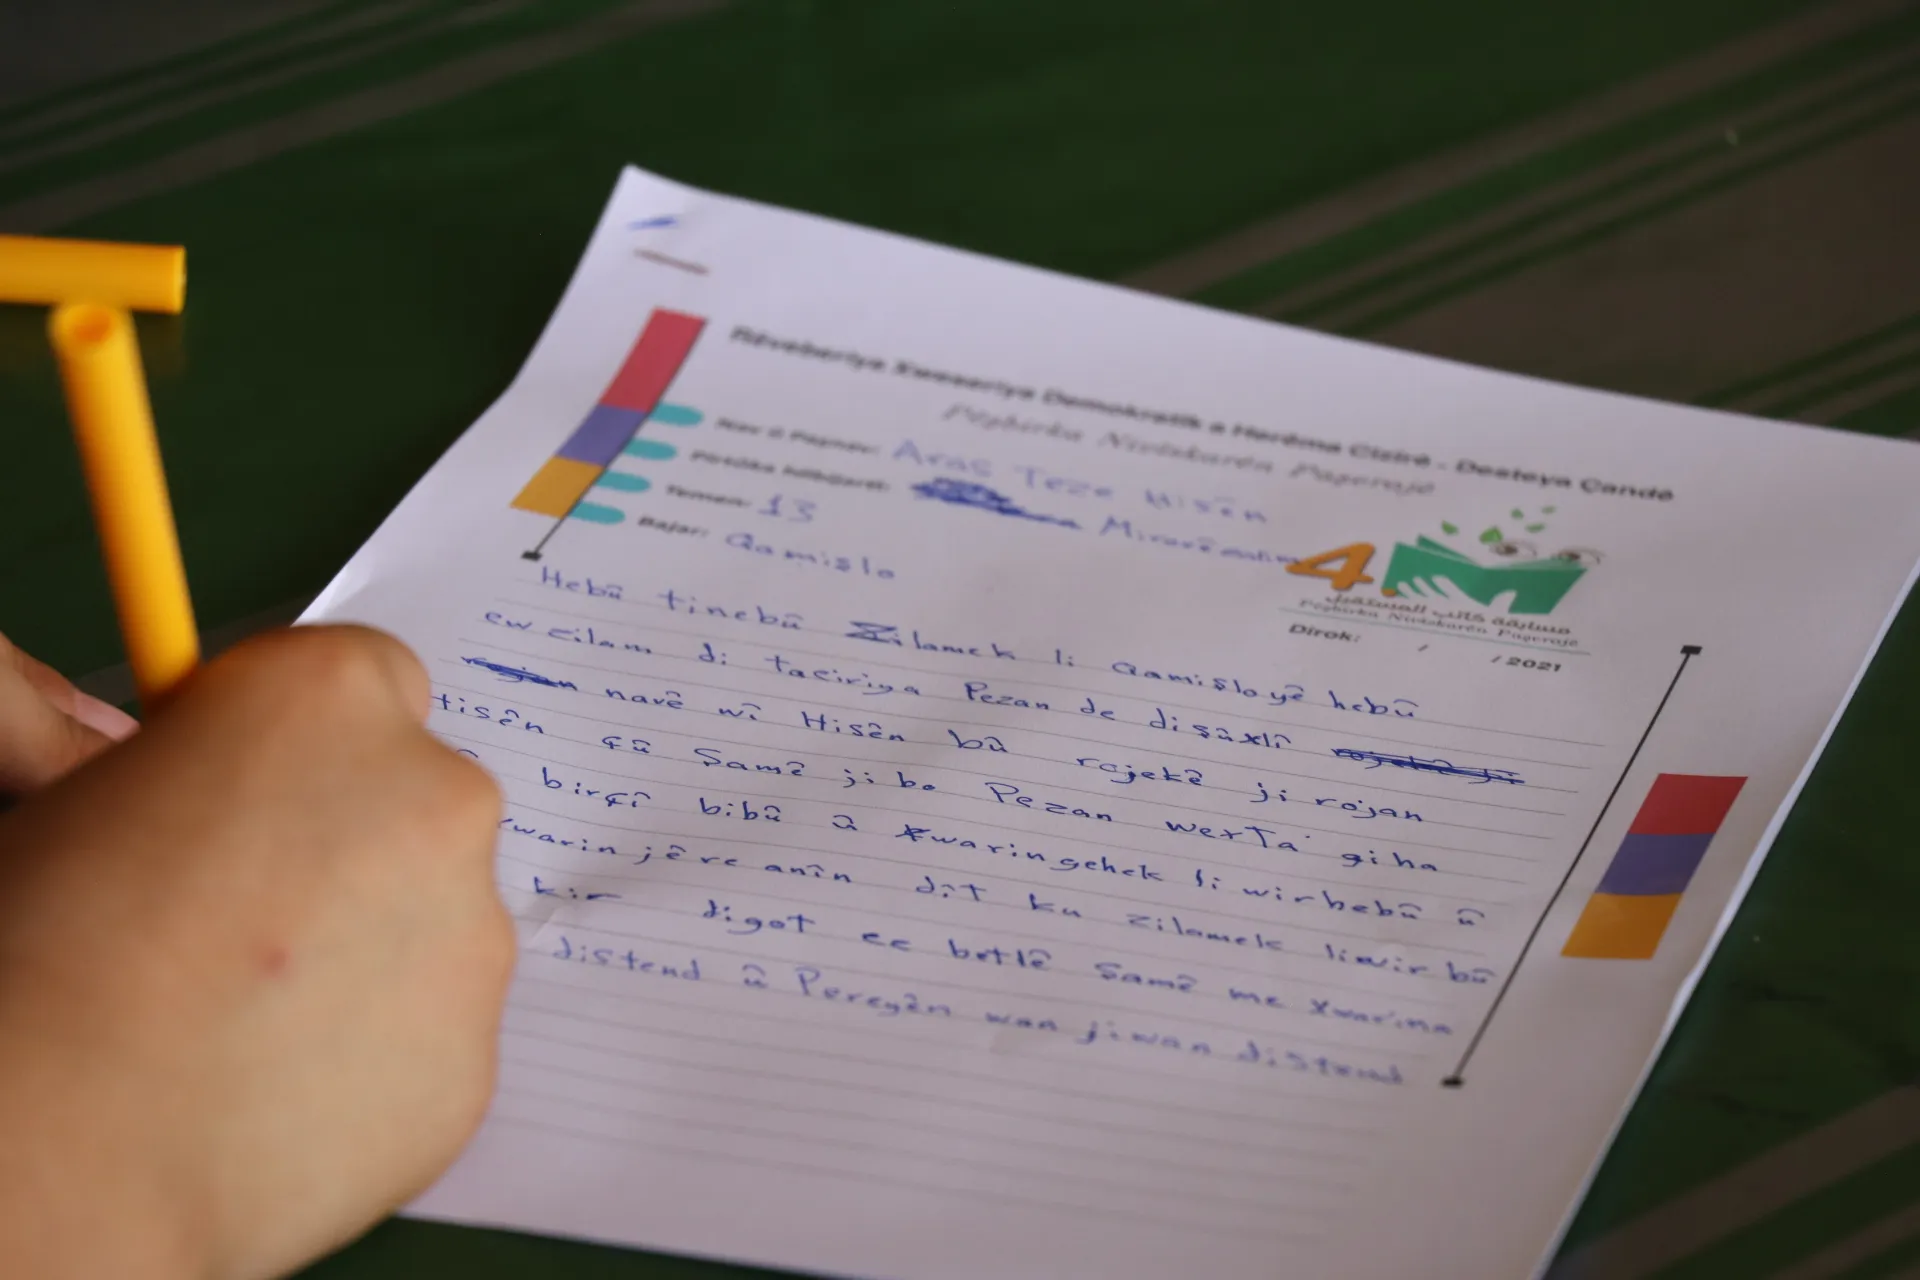 Rêveberiya Xweseriya Demokratîk a Herêma Cizîrê - Desteya Çandê
Pêşbirka Nivîskarên Paşerojê
Nav û Paşnav: Aras Teze Hisên
Temen: 13
Bajar: Qamişlo
4.
مسابقة كاتب المستقبل
Pêşbirka Nivîskarên Paşerojê
Dîrok: / / 2021
Hebû tinebû Zilamek li Qamişloyê hebû
ew zilam di taciriya Pezan de dişûxlî
navê wî Hisên bû rojekê ji rojan
Hisên çû Şamê ji bo Pezan wexta giha
birçî bibû û xwaringehek li wir hebû û
xwarin jê re anîn dît ku zilamek li wir bû
kir digot ez betlê Şamê me xwarina
distend û Pereyên wan ji wan distend